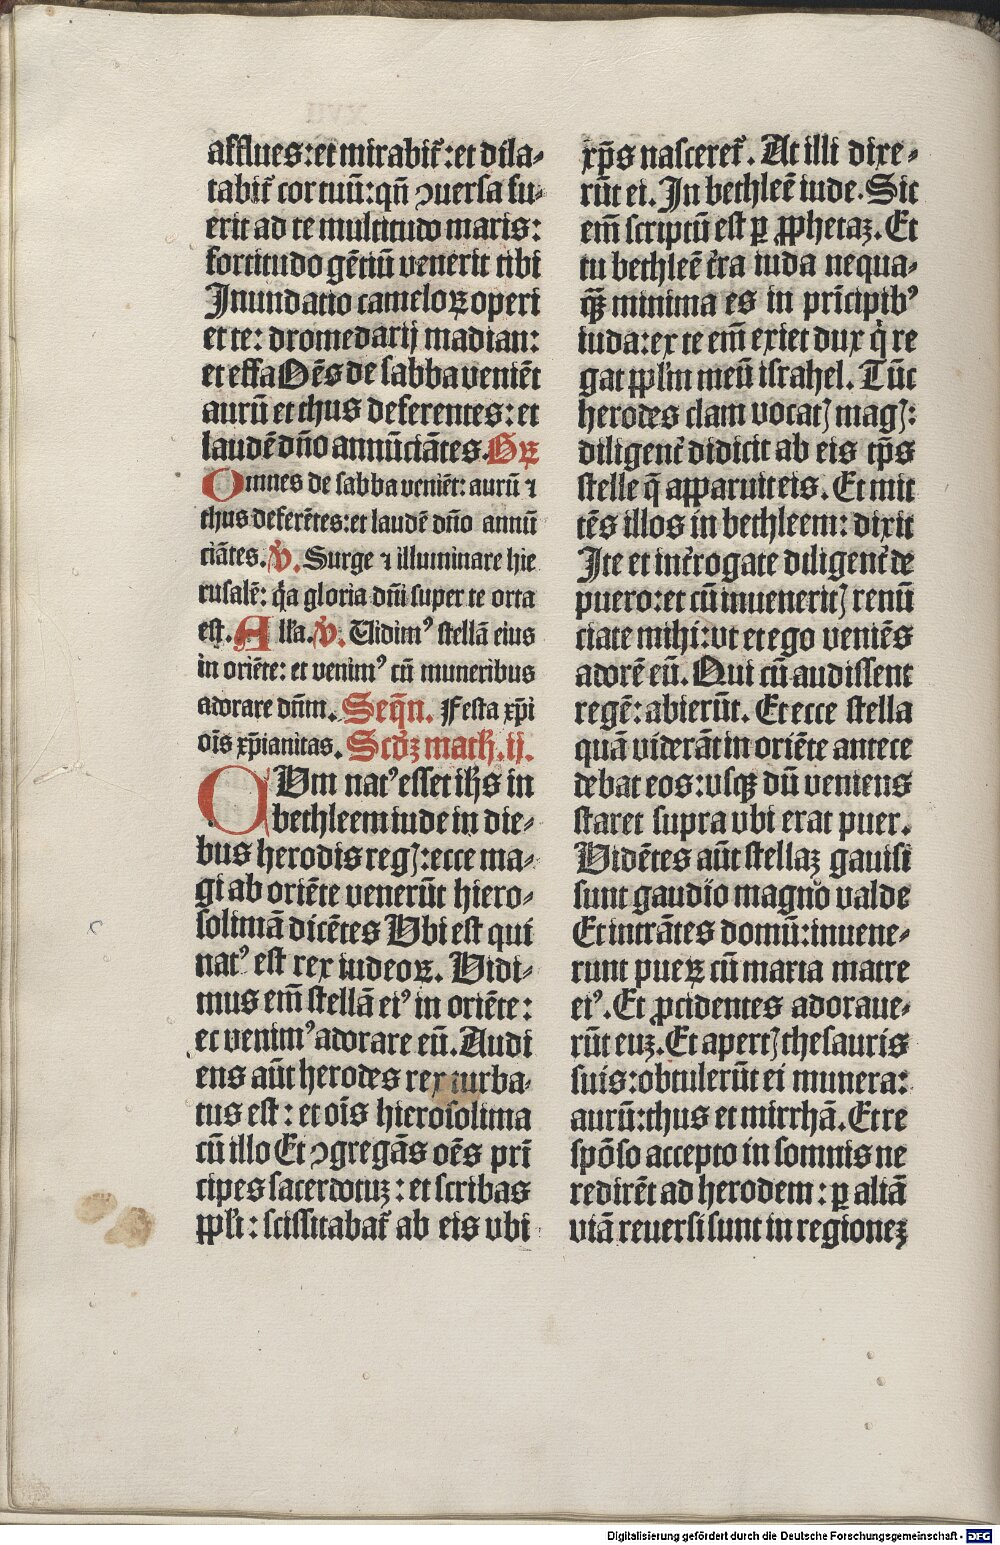 afflues:et mirabit᷑:et dila⸗
tabit᷑ cor tuū:qn̄ ↄuersa fu⸗
erit ad te multitudo maris:
fortitudo gētiū venerit tibi
Inundatio cameloꝝ operi
et te: dromedarij madian:
et effa Om̄s de sabba veniēt
aurū et thus deferentes: et
laudē dn̄o annūciātes. Gꝝ
Omnes de sabba veniēt: aurū ⁊
thus deferētes:et laudē dn̄o annū
ciātes. V̉. Surge ⁊ illuminare hie
rusalē: q̄a gloria dn̄i super te orta
est. Alla. V̉. Uidimꝰ stellā eius
in oriēte: et venimꝰ cū muneribus
adorare dn̄m. Seqn̄. Festa xp̄i
oīs xp̄ianitas. Scd'ꝫ math. ij.
CUm natꝰ esset ihs in
bethleem iude in die⸗
bus herodis regꝭ:ecce ma⸗
gi ab oriēte venerūt hiero⸗
solimā dicētes Vbi est qui
natꝰ est rex iudeoꝝ. Vidi⸗
mus em̄ stellā eiꝰ in oriēte:
et venimꝰ adorare eū. Audi
ens aūt herodes rex turba⸗
tus est: et oīs hierosolima
cū illo Et ↄgregās oēs pri
cipes sacerdotuꝫ: et scribas
ppl'i: scissitabat᷑ ab eis vbi
xp̄s nasceret᷑. At illi dixe⸗
rūt ei. In bethleē iude. Sic
em̄ scriptū est ꝑ ꝓphetaꝫ. Et
tu bethleē t'ra iuda nequa⸗
qꝫ̄ minima es in pricipibꝰ
iuda: ex te em̄ exiet dux q̇ re
gat ppl'm meū israhel. Tūc
herodes clam vocatꝭ magꝭ:
diligent᷑ didicit ab eis tp̄s
stelle q̄ apparuit eis. Et mit
tēs illos in bethleem: dixit
Ite et int'rogate diligent᷑ de
puero:et cū inueneritꝭ renū
ciate mihi:vt et ego veniēs
adorē eū. Qui cū audissent
regē: abierūt. Et ecce stella
quā viderāt in oriēte antece
debat eos:vsqꝫ dū veniens
staret supra vbi erat puer.
Vidētes aūt stellaꝫ gauisi
sunt gaudio magno valde
Et intrātes domū:inuene⸗
runt pueꝝ cū maria matre
eiꝰ. Et ꝓcidentes adoraue⸗
rūt euꝫ. Et apertꝭ thesauris
suis:obtulerūt ei munera:
aurū:thus et mirrhā. Et re
spōso accepto in somnis ne
redirēt ad herodem: ꝑ aliā
viā reuersi sunt in regioneꝫ
Digitalisierung gefördert durch die Deutsche Forschungsgemeinschaft - DFG